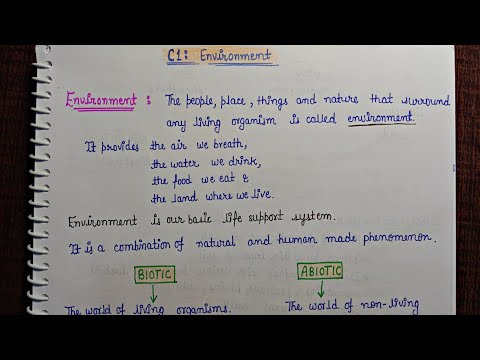 C1: Environment
Environment : The people, place, things and nature that surround
any living organism is called environment.
It provides the air we breath,
the water we drink,
the food we eat &
the land where we live.
Environment is our basic life support system.
It is a combination of natural and human made phenomenon.
BIOTIC ABIOTIC
The world of living organisms. The world of non-living